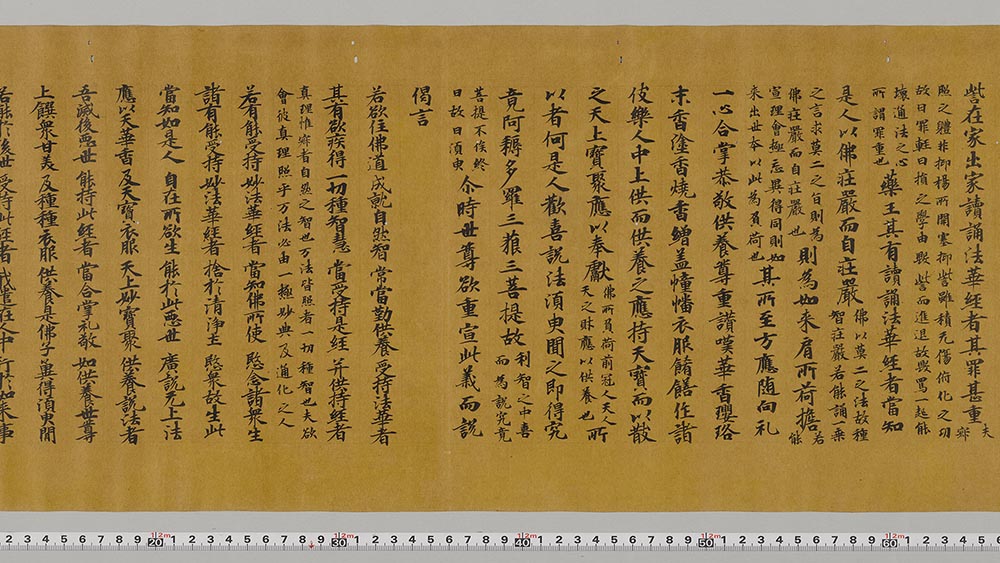 呰在家出家讀誦法華經者其罪甚重 夫寂
照之體非抑楊所闇塞抑呰雖積尤傷俯化之功
故曰罪輕曰損之學由毀呰而進退故毀罵一起能
壞道法之心
所謂罪重也 藥王其有讀誦法華經者當知
是人以佛莊嚴而自莊嚴 佛以莫二之法故種智莊嚴若能誦一乘
之言求莫二之旨則為
佛莊嚴而自莊嚴也 則為如來肩所荷擔 若能
宣理會極忘異得同則如
來出世本以此為負荷也 其所至方應隨向礼
一心合掌恭敬供養尊重讚嘆華香瓔珞
末香塗香燒香繒盖幢幡衣服餚饍作諸
伎樂人中上供而供養之應持天寶而以散
之天上寶聚應以奉獻 佛所負荷前冠人天人天之財應以供養也 所
以者何是人歡喜說法須臾聞之即得究
竟阿耨多羅三藐三菩提故 利智之中喜而為說究竟
菩提不俟終
日故曰須臾 尒時世尊欲重宣此義而說
偈言
若欲住佛道 成就自然智 常當勤供養 受持法華者
其有欲疾得 一切種智慧 當受持是經 并供持經者
真理惟寂者自然之智也万法皆照者一切種智也夫欲
會彼真理照乎万法必由一極妙典及道化之人
若有能受持 妙法華經者 當知佛所使 愍念諸衆生
諸有能受持 妙法華經者 捨於清淨土 愍衆故生此
當知如是人 自在所欲生 能於此惡世 廣說无上法
應以天華香 及天寶衣服 天上妙寶聚 供養說法者
吾滅後惡世 能持此經者 當合掌礼敬 如供養世尊
上饌衆甘美 及種種衣服 供養是佛子 冀得須臾聞
若能於後世 受持此經者 我遣在人中 行於如來事
2 3 4 5 6 7 8 9 20 1 2 3 4 5 6 7 8 9 30 1 2 3 4 5 6 7 8 9 40 1 2 3 4 5 6 7 8 9 50 1 2 3 4 5 6 7 8 9 60 1 2 3 4 5